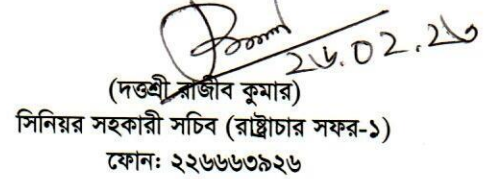 ২৬.০২.২৬
(দত্তশ্রী রাজীব কুমার)
সিনিয়র সহকারী সচিব (রাষ্ট্রাচার সফর-১)
ফোনঃ ২২৬৬৬৩৯২৬